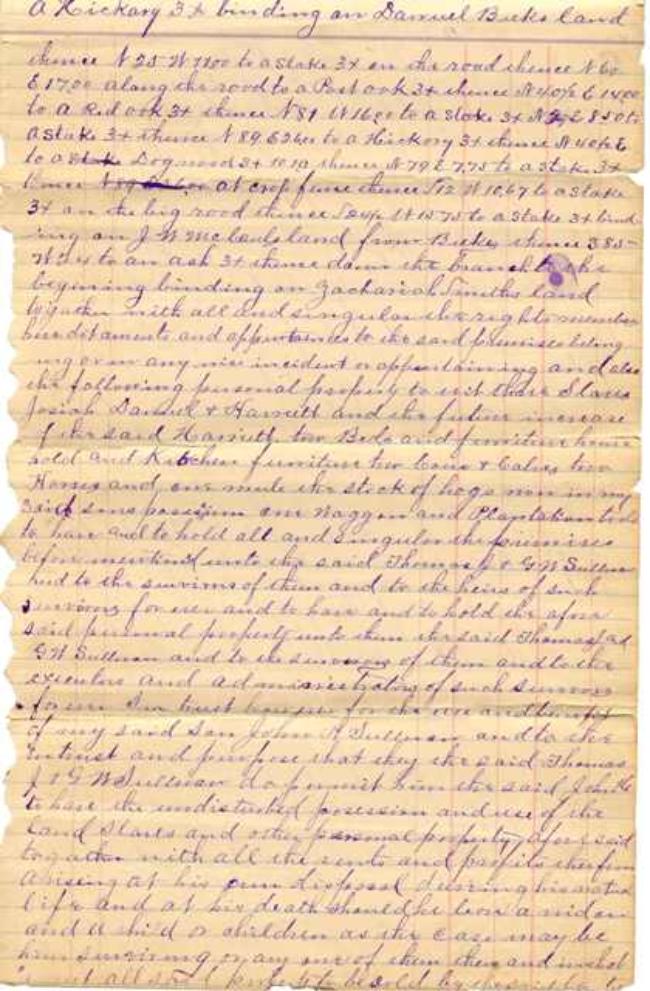 a Hickory 3x binding on Damuel Beeks land
thence N 25 W 1100 to a stake 3x on the road thence N 60
E 17,00 along the road to a Post oak 3x thence N 40½ E 14,00
to a Red oak 3x thence N 81 W 1600 to a stake 3x E 850 to
a stake 3x thence N 89 E to a Hickory 3x thence N 40½ E
to a Dogwood 3x thence N 79 E 7,75 to a stake 3x
thence at crop fence thence S 12 W 10,67 to a stake
3x on the big road thence W 1575 to a stake 3x bind
ing on J W land from Beeks thence S 85
W to an ash 3x thence down the branch to the
begining binding on Zachariah Smiths land
together with all and singular the rights member
hereditaments and appurtances to the said premises belong
ing or in any wise incident or appertaining and also
the following personal property to wit three Slaves
Josiah Damuel & Harriett and the future increase
of the said Harriett, two Beds and furniture house
hold and Kitchen furniture two Cows & Calves two
Horses and one mule the stock of hogs now in my
said sons possession one Waggon and Plantation tools
to have and to hold all and singular the premises
before mentioned unto the said Thomas J & G W Sullivan
and to the survivors of them and to the heirs of such
survivors for ever and to have and to hold the afore
said personal property unto them the said Thomas J and
G W Sullivan and to the survivors of them and to the
executors and administrators of such survivors
for ever In trust however for the use and benefit
of my said son John H Sullivan and to the
intrust and purpose that they the said Thomas
J & G W Sullivan do permit him the said John H
to have the undisturbed possession and use of the
land Slaves and other personal property afore said
together with all the rents and profits therefrom
arising at his own disposal durring his natural
life and at his death should he leave a widow
and a child or children as the case may be
him surviving or any one of them then and in that
event all to be sold by